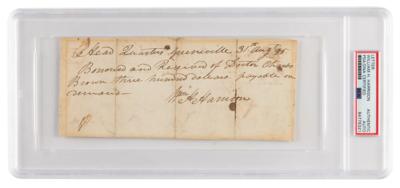 Head Quarters Greenville 31st Aug 95
Borrowed and Received of Doctor Charles
Brown three hundred dollars payable on
demand
Wm H Harrison
LETTER
WILLIAM H. HARRISON
PSA/DNA CERTIFIED
AUTHENTIC
AUTO